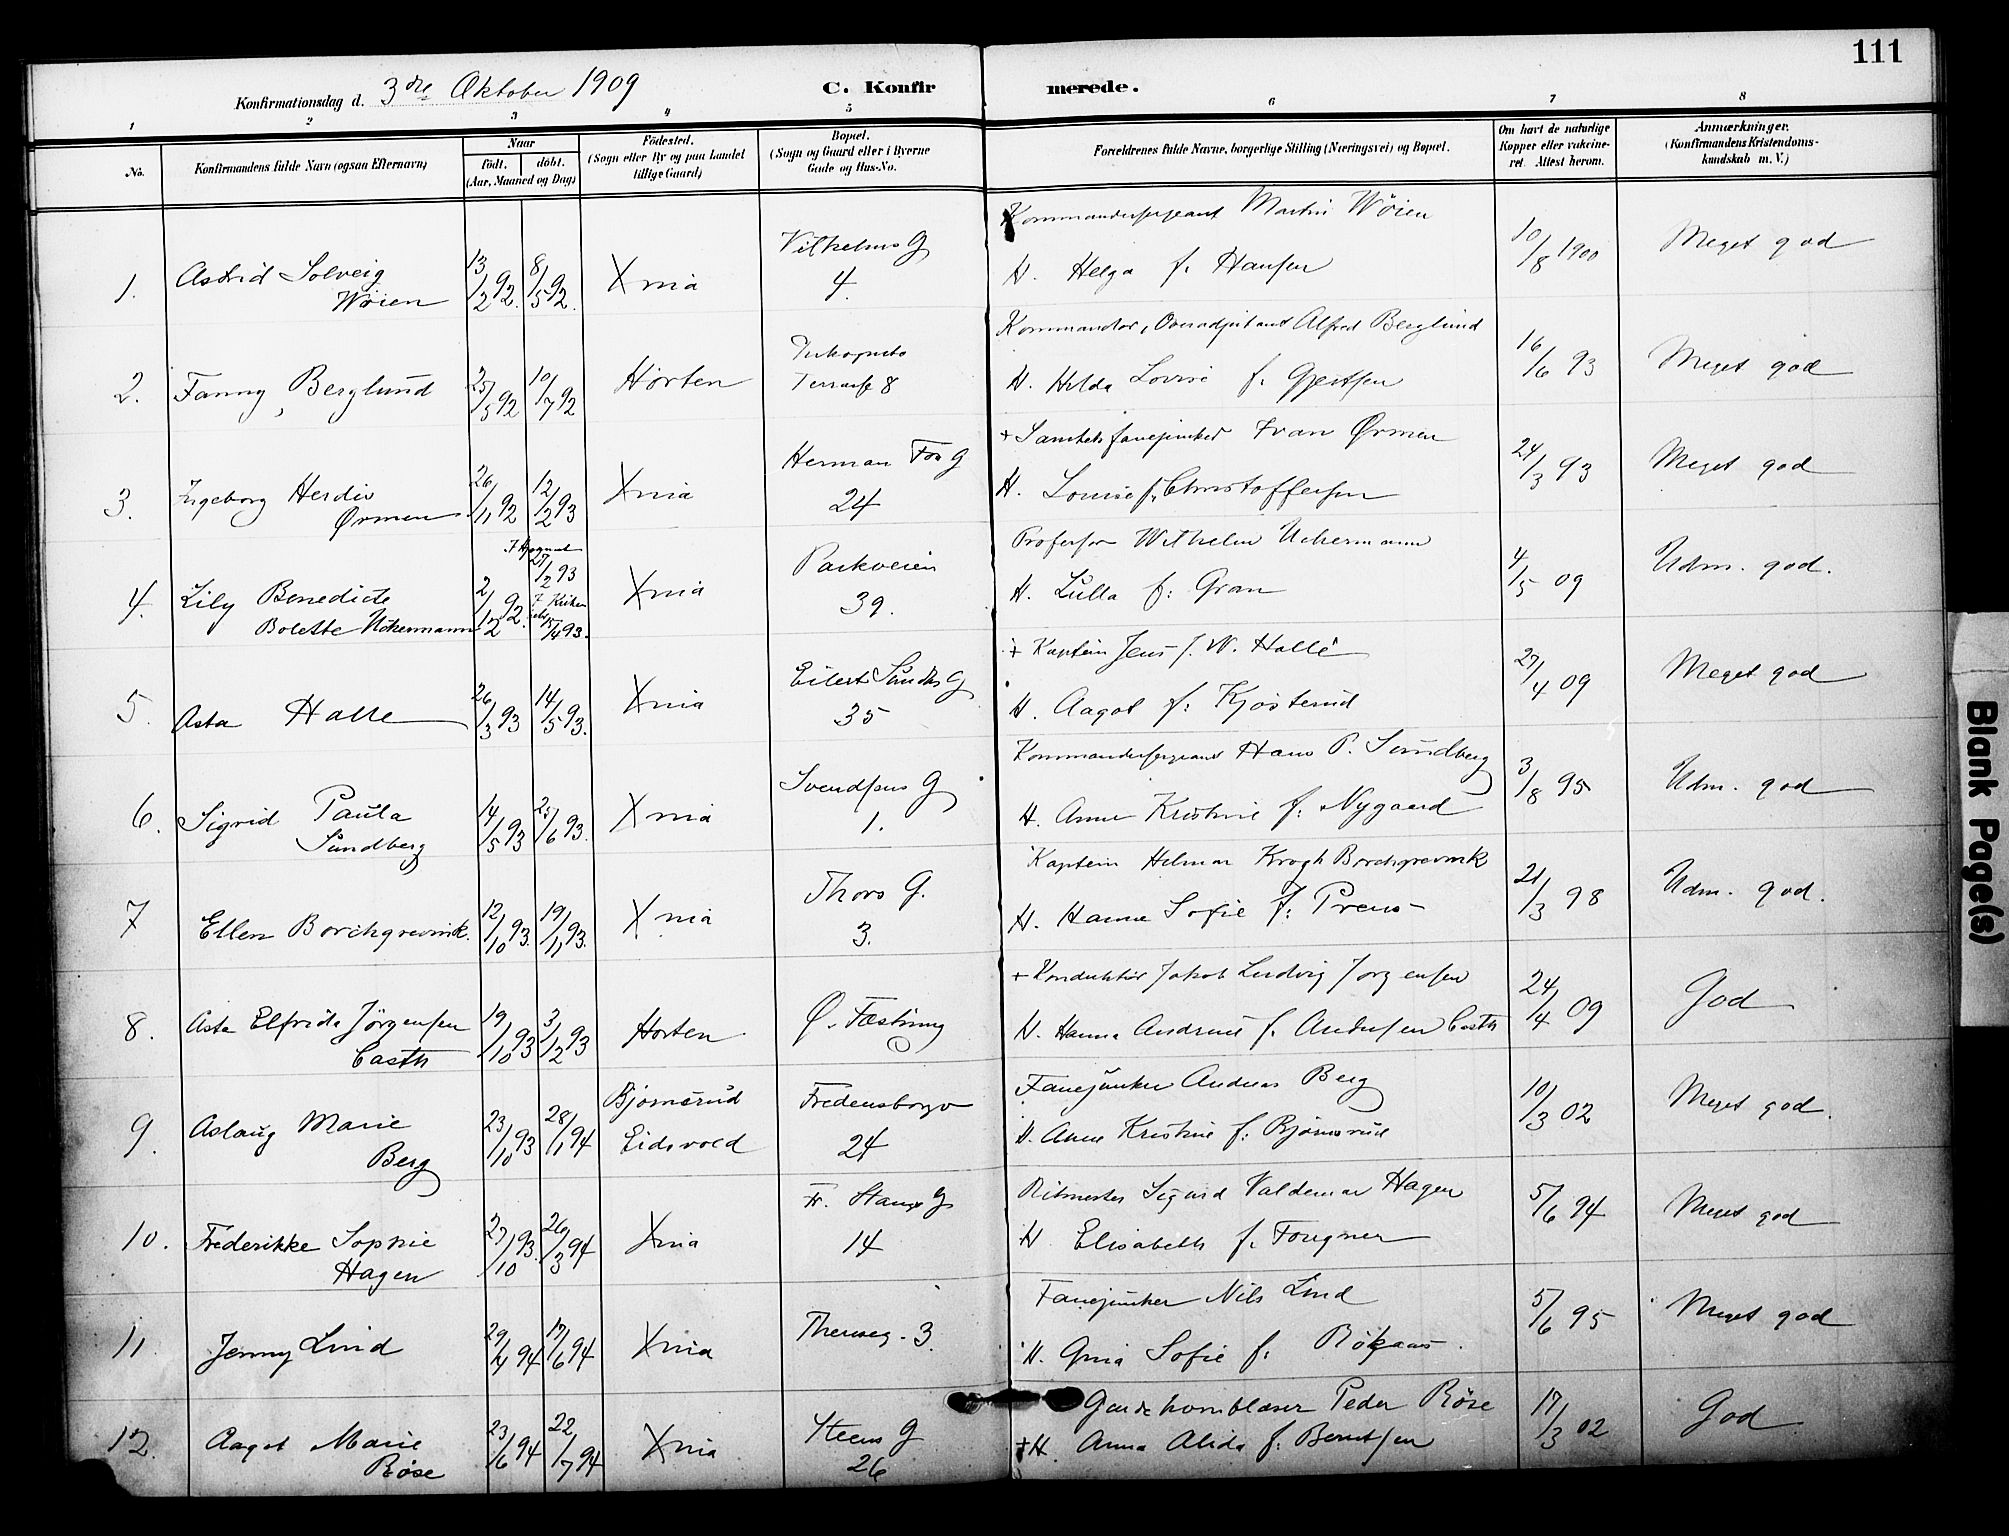 111
Konfirmationsdag d. 3dre Oktober 1909 C. Konfirmerede.
1 2 3 4 5 6 7 8
No. Konfirmandens fulde Navn (ogsaa Efternavn) Naar födt. döbt. (Aar, Maaned og Dag) Födested. (Sogn eller By og paa Landet tillige Gaard) Bopæl. (Sogn og Gaard eller i Byerne Gade og Hus-No. Forældrenes fulde Navne, borgerlige Stilling (Næringsvei) og Bopæl. Om havt de naturlige Kopper eller vakcineret. Attest herom. Anmærkninger. (Konfirmandens Kristendomskundskab m. V.)
1. Astrid Solveig Wöien 13/2 92. 8/5 92. Xnia Vilhelms G 4. Kommandersergeant Martin Wöien H. Helga f. Hansen 10/8 1900 Meget god
2. Fanny Berglund 25/5 92 10/7 92 Horten Inkognito Terrasse 8 Kommandør, Overadjutant Alfred Berglund H. Hilda Lovise f. Gjertsen 16/6 93 Meget god
3. Ingeborg Herdis Ørmen 26/11 92 12/2 93 Xnia Herman Foss G 24 + Sanitetsfanejunker Ivan Ørmen H. Louise f. Christoffersen 24/3 93 Meget god
4. Lily Benedicte Bolette Uchermann 2/12 92. 27/2 93 15/4 93. Xnia Parkveien 39. Professor Wilhelm Uchermann H. Lulla f: Gran 4/5 09 Udm. god.
5. Asta Halle 26/3 93 14/5 93. Xnia Eilert Sundts G 35 + Kaptein Jens J. W. Halle H. Aagot f. Kjösterud 27/4 09 Meget god
6. Sigrid Paula Sundberg 14/5 93 25/6 93. Xnia Svendsens G 1. Kommandersergeant Hans P. Sundberg H. Anne Kristine f: Nygaard 3/8 95 Udm. god
7 Ellen Borchgrevink. 12/10 93. 19/11 93. Xnia Thors G. 3. Kaptein Helmar Krogh Borchgrevink H. Hanne Sofie f: Preus 21/3 98 Udm. god.
8. Asta Elfrida Jørgensen Casth 19/10 93 3/12 93 Horten Ø. Fæstning + Konduktør Jakob Ludvig Jørgensen H. Hanna Andrine f. Andersen Casth 24/4 09 God
9. Aslaug Marie Berg 23/10 93 28/1 94 Bjørnsrud Eidsvold Fredensborgv 24 Fanejunker Andreas Berg H. Anne Kristine f: Bjørnsrud 10/3 02 Meget god.
10. Frederikke Sophie Hagen 27/10 93. 26/3 94 Xnia Fr. Stangs G 14 Ritmester Sigurd Valdemar Hagen H Elisabeth f. Fougner 5/6 94 Meget god
11. Jenny Lind 29/4 94 17/6 94 Xnia Theresesg. 3. Fanejunker Nils Lind H. Gina Sofie f. 5/6 95 Meget god
12. Aagot Marie Röse 23/6 94 22/7 94 Xnia Steens G 26 Gardehornblæser Peder Röse +H. Anna Alida f: Berntsen 17/3 02 God
Blank Page(s)